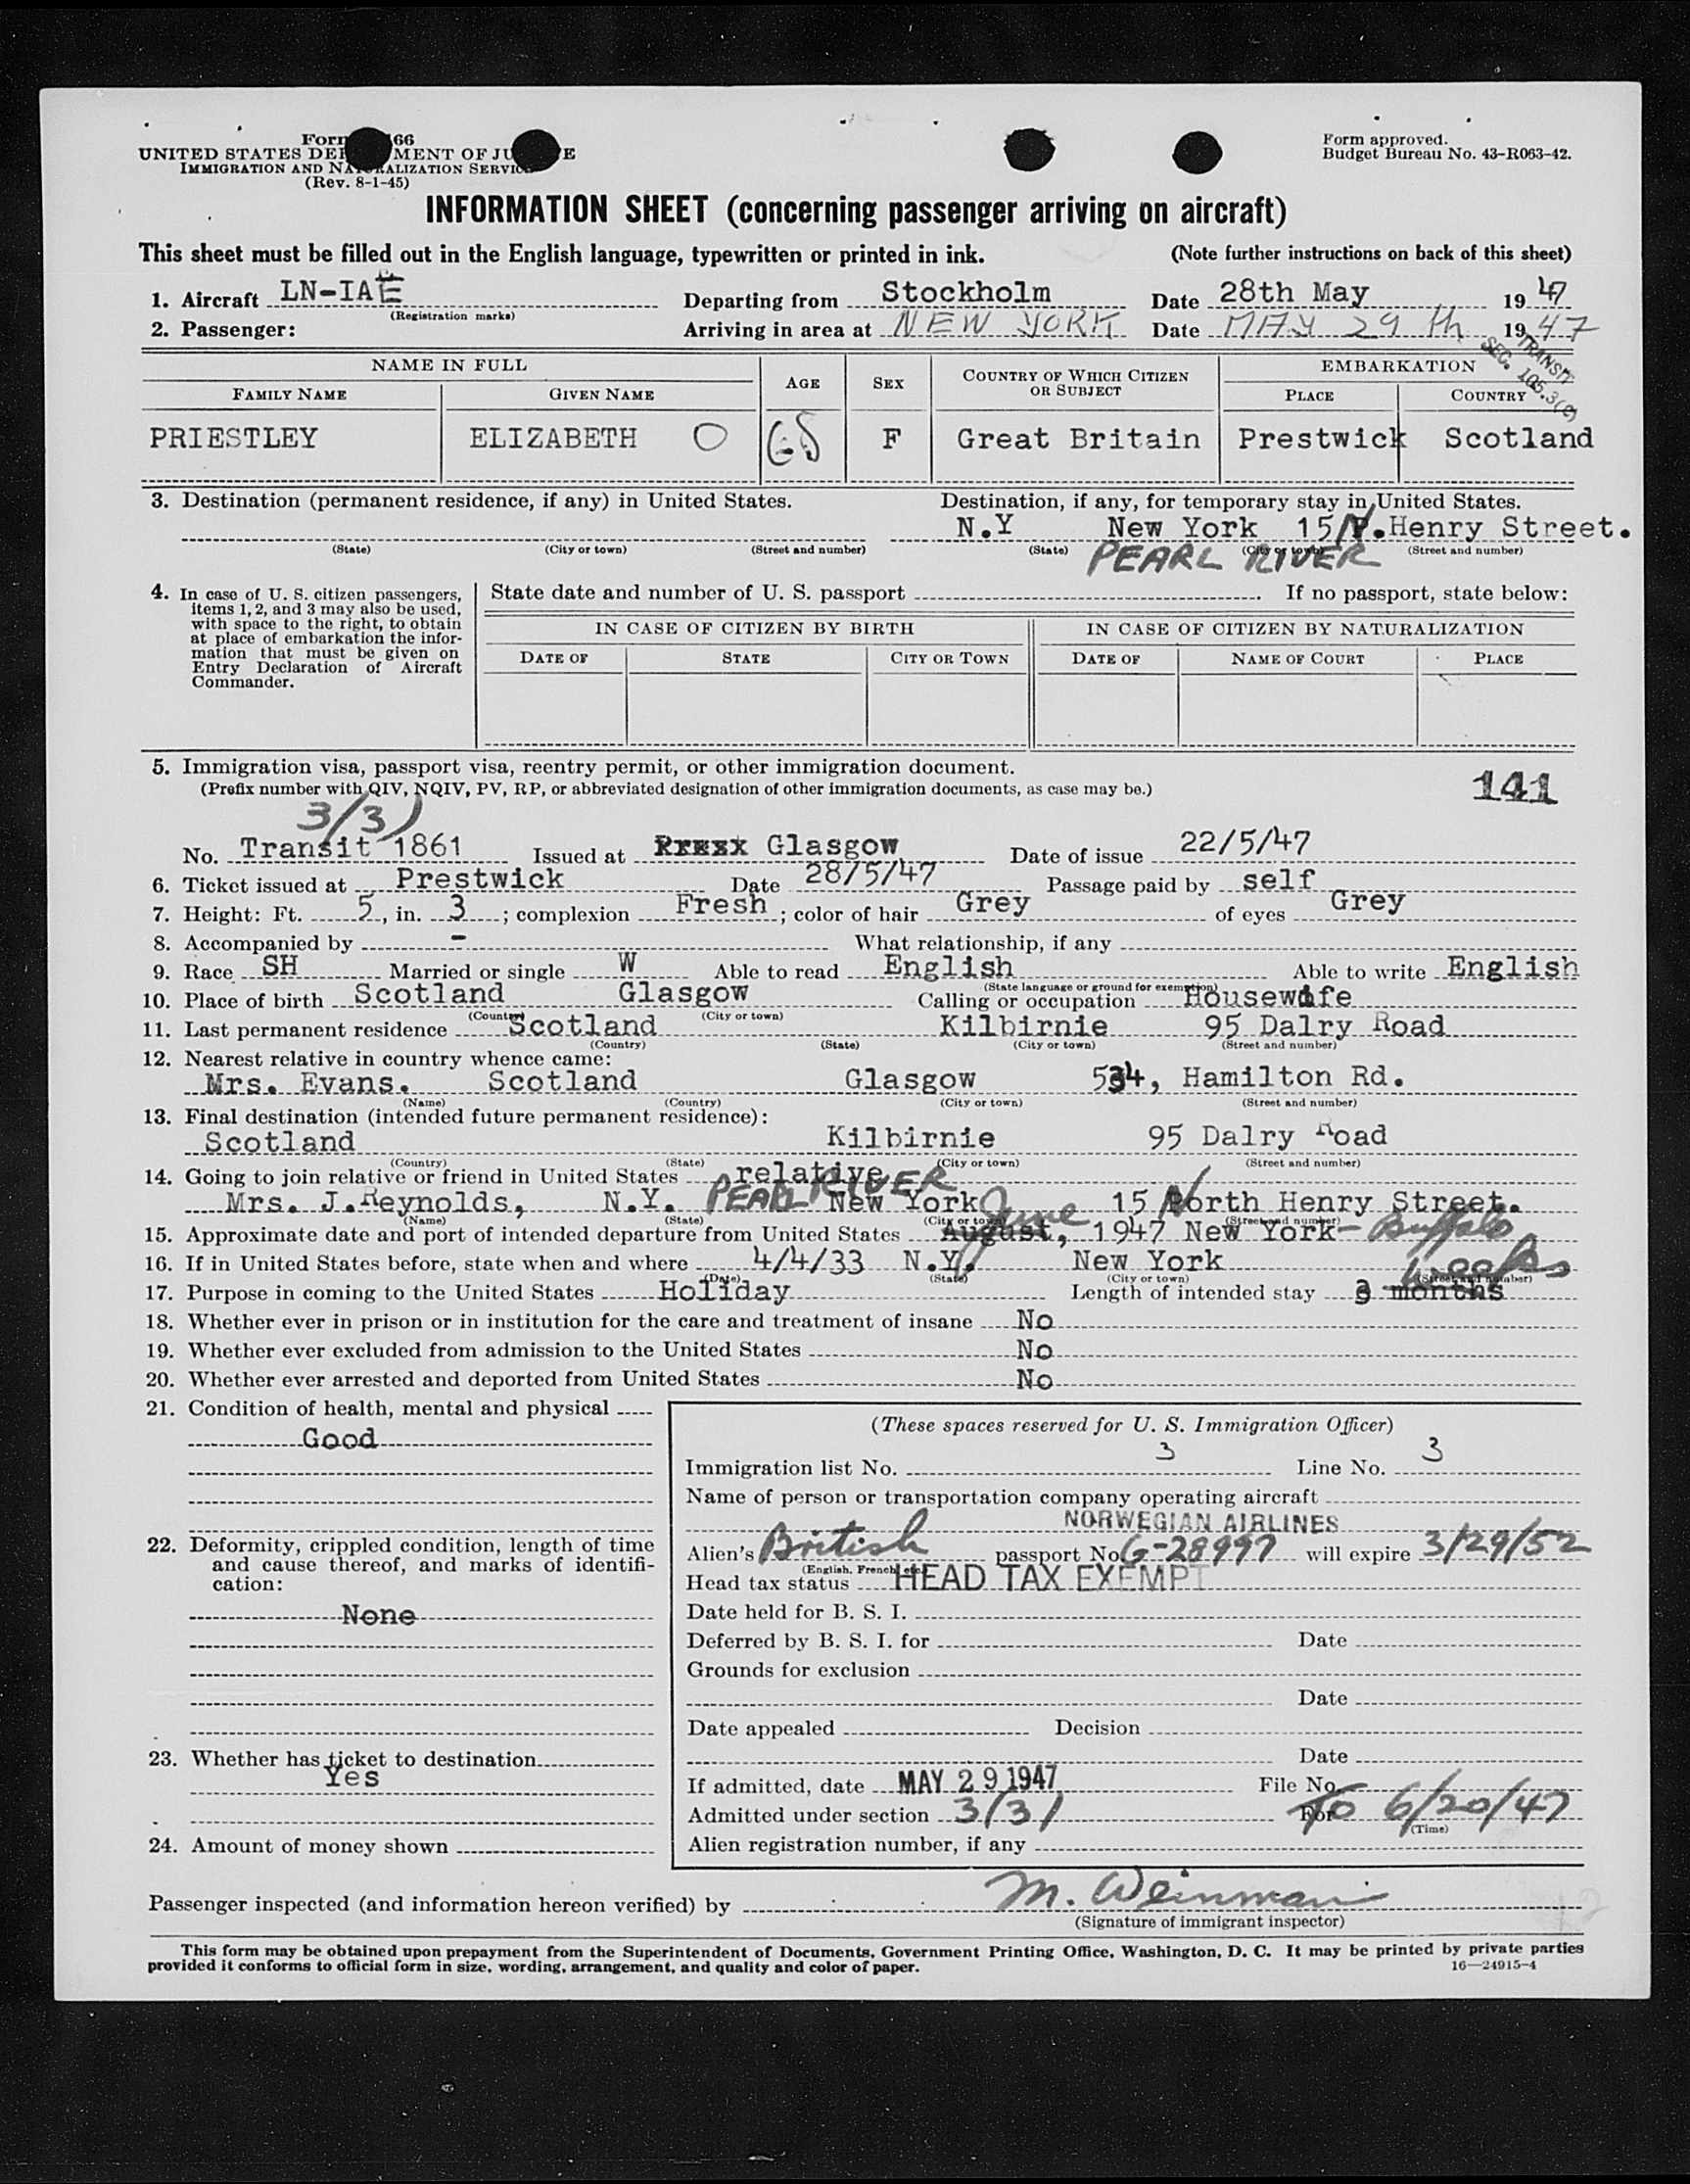 Form 66
UNITED STATES DEPARTMENT OF JUSTICE
IMMIGRATION AND NATURALIZATION SERVICE
(Rev. 8-1-45)
Form approved.
Budget Bureau No. 43-R063-42.
INFORMATION SHEET (concerning passenger arriving on aircraft)
This sheet must be filled out in the English language, typewritten or printed in ink. (Note further instructions on back of this sheet)
1. Aircraft LN-IAE Departing from Stockholm Date 28th May 1947
(Registration marks)
2. Passenger: Arriving in area at NEW YORK Date MAY 29th 1947
TRANSIT
SEC. 105.3(c)
NAME IN FULL AGE SEX COUNTRY OF WHICH CITIZEN OR SUBJECT EMBARKATION
FAMILY NAME GIVEN NAME PLACE COUNTRY
PRIESTLEY ELIZABETH O 65 F Great Britain Prestwick Scotland
3. Destination (permanent residence, if any) in United States. Destination, if any, for temporary stay in United States.
N.Y New York 15 N. Henry Street.
(State) (City or town) (Street and number) (State) (City or town) (Street and number)
PEARL RIVER
4. In case of U. S. citizen passengers, items 1, 2, and 3 may also be used, with space to the right, to obtain at place of embarkation the information that must be given on Entry Declaration of Aircraft Commander.
State date and number of U. S. passport . If no passport, state below:
IN CASE OF CITIZEN BY BIRTH IN CASE OF CITIZEN BY NATURALIZATION
DATE OF STATE CITY OR TOWN DATE OF NAME OF COURT PLACE
5. Immigration visa, passport visa, reentry permit, or other immigration document.
(Prefix number with QIV, NQIV, PV, RP, or abbreviated designation of other immigration documents, as case may be.)
141
3/3)
No. Transit 1861 Issued at Glasgow Date of issue 22/5/47
6. Ticket issued at Prestwick Date 28/5/47 Passage paid by self
7. Height: Ft. 5, in. 3; complexion Fresh; color of hair Grey of eyes Grey
8. Accompanied by - What relationship, if any
9. Race SH Married or single W Able to read English Able to write English
(State language or ground for exemption)
10. Place of birth Scotland Glasgow Calling or occupation Housewife
(Country) (City or town)
11. Last permanent residence Scotland Kilbirnie 95 Dalry Road
(Country) (State) (City or town) (Street and number)
12. Nearest relative in country whence came:
Mrs. Evans. Scotland Glasgow 534, Hamilton Rd.
(Name) (Country) (City or town) (Street and number)
13. Final destination (intended future permanent residence):
Scotland Kilbirnie 95 Dalry Road
(Country) (State) (City or town) (Street and number)
14. Going to join relative or friend in United States relative
PEARL RIVER
Mrs. J. Reynolds, N.Y. New York 15 North Henry Street.
(Name) (State) (City or town) (Street and number)
15. Approximate date and port of intended departure from United States August, June 1947 New York - Buffalo
16. If in United States before, state when and where 4/4/33 N.Y. New York
(Date) (State) (City or town) (Street and number)
17. Purpose in coming to the United States Holiday Length of intended stay 3 months weeks
18. Whether ever in prison or in institution for the care and treatment of insane No
19. Whether ever excluded from admission to the United States No
20. Whether ever arrested and deported from United States No
21. Condition of health, mental and physical
Good
22. Deformity, crippled condition, length of time and cause thereof, and marks of identification:
None
23. Whether has ticket to destination
Yes
24. Amount of money shown
(These spaces reserved for U. S. Immigration Officer)
Immigration list No. 3 Line No. 3
Name of person or transportation company operating aircraft
NORWEGIAN AIRLINES
Alien's British passport No. G-28997 will expire 3/29/52
(English, French, etc.)
Head tax status HEAD TAX EXEMPT
Date held for B. S. I.
Deferred by B. S. I. for Date
Grounds for exclusion
Date
Date appealed Decision
Date
If admitted, date MAY 29 1947 File No.
Admitted under section 3/3/ For To 6/20/47
(Time)
Alien registration number, if any
Passenger inspected (and information hereon verified) by M. Weinman
(Signature of immigrant inspector)
This form may be obtained upon prepayment from the Superintendent of Documents, Government Printing Office, Washington, D. C. It may be printed by private parties
provided it conforms to official form in size, wording, arrangement, and quality and color of paper. 16—24915-4